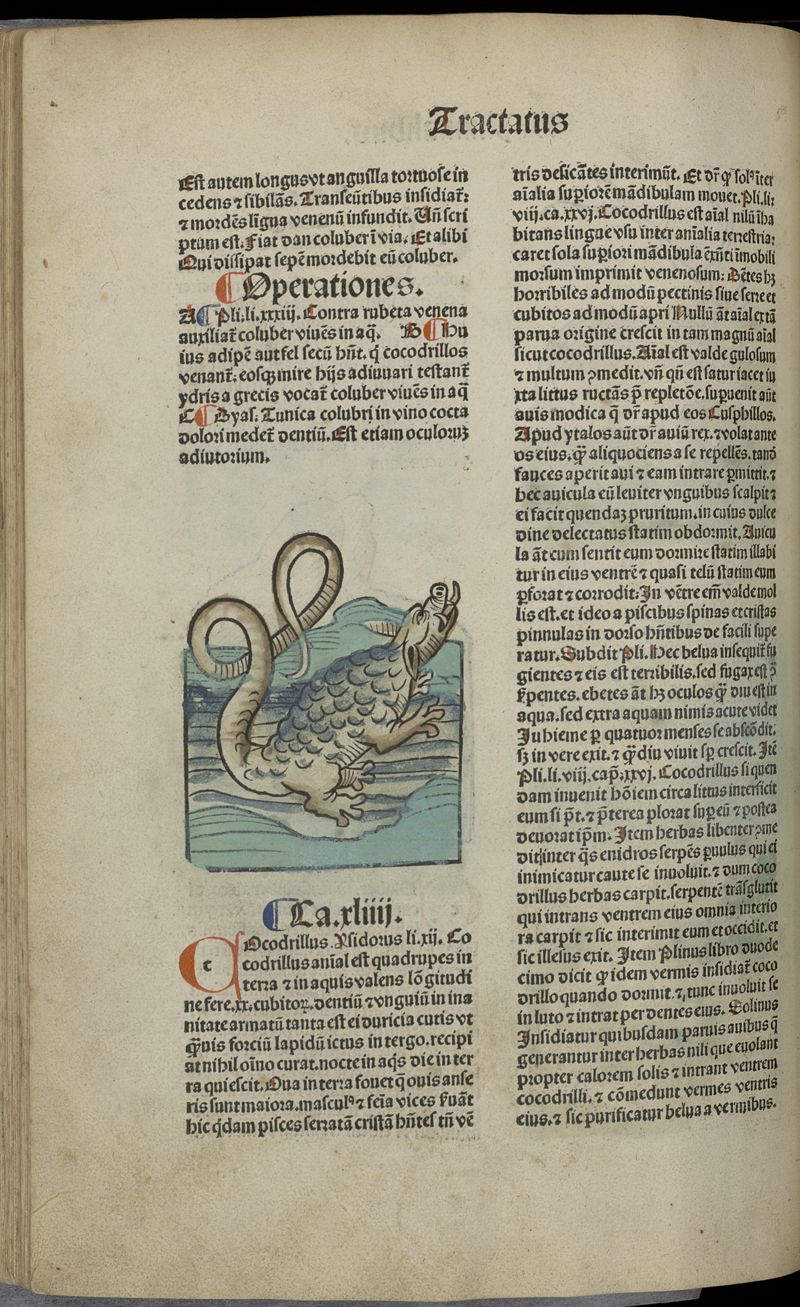 Tractatus
Est autem longus vt anguilla tortuose in
cedens ⁊ sibilãs. Transeũtibus insidiat᷑:
⁊ mordẽs lĩgua venenũ infundit. Vñ scri
ptum est. Fiat dan coluber ĩ via. Et alibi
Qui dissipat sepẽ mordebit eũ coluber.
¶ Operationes.
A ¶ Pli. li. xxxiij. Contra rubeta venena
auxiliat᷑ coluber viuẽs in aq̃. B ¶ Hu
ius adipẽ aut fel secũ hñt. q̇ cocodrillos
venant᷑: eosqꝫ mire hijs adiuuari testant᷑
ydris a grecis vocat᷑ coluber viuẽs in aq̃
C ¶ Dyas. Tunica colubri in vino cocta
dolori medet᷑ dentiũ. Est etiam oculoruꝫ
adiutorium.
¶ Ca. xliiij.
c Ocodrillus. Ysidorus li. xij. Co
codrillus aniãl est quadrupes in
terra ⁊ in aquis valens lõgitudi
ne fere. xx. cubitoꝝ. dentiũ ⁊ vnguiũ in ina
nitate armatũ tanta est ei duricia cutis vt
q̃ꝫuis forciũ lapidũ ictus in tergo. recipi
at nihil oĩno curat. nocte in aq̃s die in ter
ra quiescit. Oua in terra fouet q̃ ouis anse
ris sunt maiora. mascul᷒ ⁊ feĩa vices ẜuãt
hic q̇dam pisces serratã cristã hñtes tñ vẽ
tris desicãtes interimũt. Et dr̃ ꝙ sol᷒ ĩter
aĩalia suꝑiorẽ mãdibulam mouet. Pli. li:
viij. ca. xxvj. Cocodrillus est aĩal nilũ ĩha
bitans lingue vsu inter anĩalia terrestria:
caret sola suꝑiori mãdibula ẽxñti ĩmobili
morsum imprimit venenosum: Dẽtes hꝫ
horribiles ad modũ pectinis siue serre et
cubitos ad modũ apri Nullũ ãt aĩal ex tã
parua origine crescit in tam magnũ aĩal
sicut cocodrillus. Aĩal est valde gulosum
⁊ multum ꝯmedit. vñ qñ est satur iacet iu
xta littus ructãs p̃ repletõe. suꝑuenit aũt
auis modica q̃ dr̃ apud eos Cusphillos.
Apud ytalos aũt dr̃ auiũ rex. ⁊ volat ante
os eius. q̃ꝫ aliquociens a se repellẽs. tandẽ
fauces aperit aui ⁊ eam intrare ꝑmittit. ⁊
hec auicula eũ leuiter vnguibus scalpit ⁊
ei facit quendaꝫ pruritum. in cuius dulce
dine delectatus statim obdormit. Auicu
la ãt cum sentit eum dormire statim illabi
tur in eius ventrẽ ⁊ quasi telũ statim eum
ꝑforat ⁊ corrodit: In vẽtre em̃ valde mol
lis est. et ideo a piscibus spinas et cristas
pinnulas in dorso hñtibus de facili supe
ratur. Subdit Pli. Hec belua insequit᷑ fu
gientes ⁊ eis est terribilis. sed fugax est p̃
ẜpentes. ebetes ãt hꝫ oculos q̃ꝫ diu est in
aqua. sed extra aquam nimis acute videt
In hieme ꝑ quatuor menses se abscõdit.
sꝫ in vere exit. ⁊ q̃ꝫ diu viuit sꝑ crescit. Itẽ
Pli. li. viij. cap̃: xxvj. Cocodrillus si quen
dam inuenit hõiem circa littus interficit
eum si p̃t. ⁊ p̃terea plorat suꝑ eũ ⁊ postea
deuorat ip̃m. Item herbas libenter ꝯme
dit inter q̃s enidros serpẽs ꝑuulus qui ei
inimicatur caute se inuoluit. ⁊ dum coco
drillus herbas carpit. serpentẽ trãsglutit
qui intrans ventrem eius omnia interio
ra carpit ⁊ sic interimit eum et occidit. et
sic illesus exit. Item Plinus libro duode
cimo dicit ꝙ idem vermis insidiat᷑ coco
drillo quando dormit. ⁊ tunc inuoluit se
in luto ⁊ intrat per dentes eius. Solinus
Insidiatur quibusdam paruis auibus q̃
generantur inter herbas nili que euolant
propter calorem solis ⁊ intrant ventrem
cocodrilli. ⁊ cõmedunt vermes ventris
eius. ⁊ sic purificatur belua a vermibus.